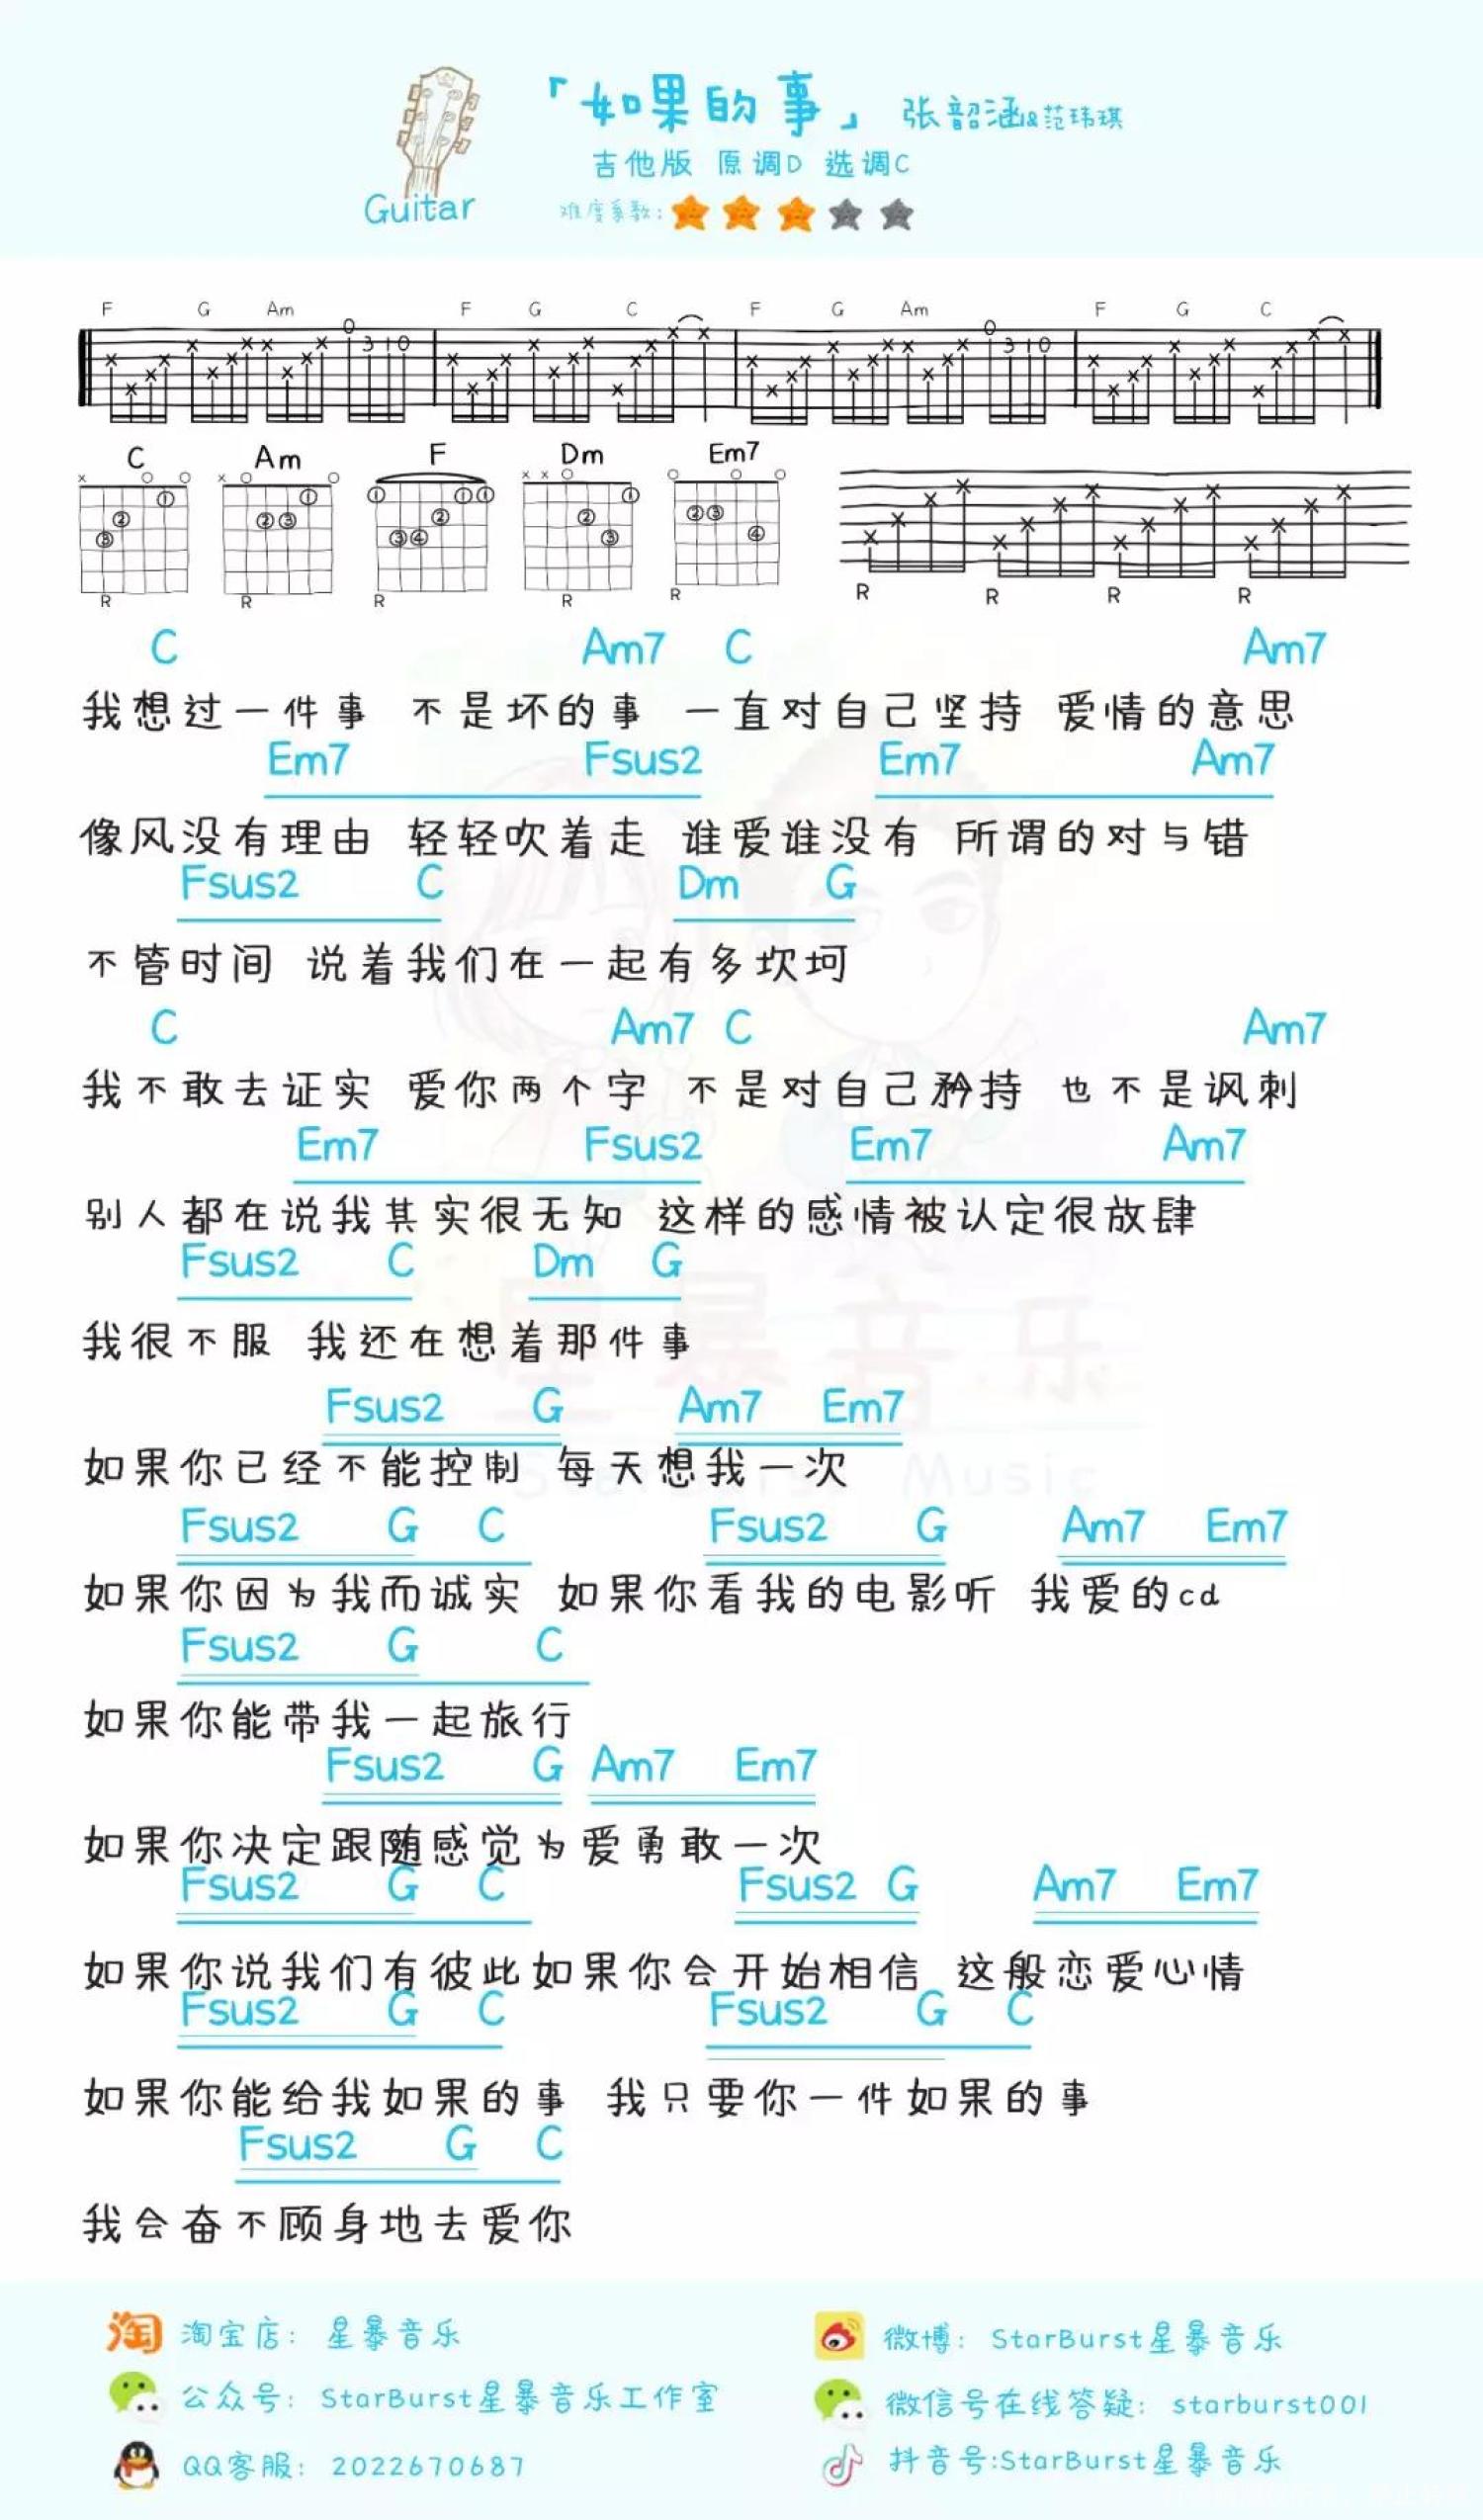 「如果的事」 张韶涵&范玮琪
吉他版 原调D 选调C
Guitar
难度系数:
F G Am F G C F G Am F G C
0 3 1 0 0 3 1 0
C Am F Dm Em7
R R R R R R R R R
C Am7 C Am7
我想过一件事 不是坏的事 一直对自己坚持 爱情的意思
Em7 Fsus2 Em7 Am7
像风没有理由 轻轻吹着走 谁爱谁没有 所谓的对与错
Fsus2 C Dm G
不管时间 说着我们在一起有多坎坷
C Am7 C Am7
我不敢去证实 爱你两个字 不是对自己矜持 也不是讽刺
Em7 Fsus2 Em7 Am7
别人都在说我其实很无知 这样的感情被认定很放肆
Fsus2 C Dm G
我很不服 我还在想着那件事
Fsus2 G Am7 Em7
如果你已经不能控制 每天想我一次
Fsus2 G C Fsus2 G Am7 Em7
如果你因为我而诚实 如果你看我的电影听 我爱的cd
Fsus2 G C
如果你能带我一起旅行
Fsus2 G Am7 Em7
如果你决定跟随感觉为爱勇敢一次
Fsus2 G C Fsus2 G Am7 Em7
如果你说我们有彼此如果你会开始相信 这般恋爱心情
Fsus2 G C Fsus2 G C
如果你能给我如果的事 我只要你一件如果的事
Fsus2 G C
我会奋不顾身地去爱你
星暴音乐
StarBurst Music
淘 淘宝店: 星暴音乐
微博: StarBurst星暴音乐
公众号: StarBurst星暴音乐工作室
微信号在线答疑: starburst001
QQ客服: 2022670687
抖音号:StarBurst星暴音乐